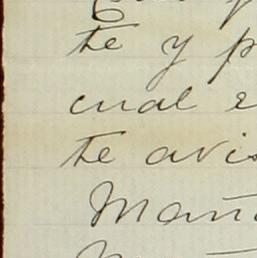 te y p
cual e
te avis
Maña